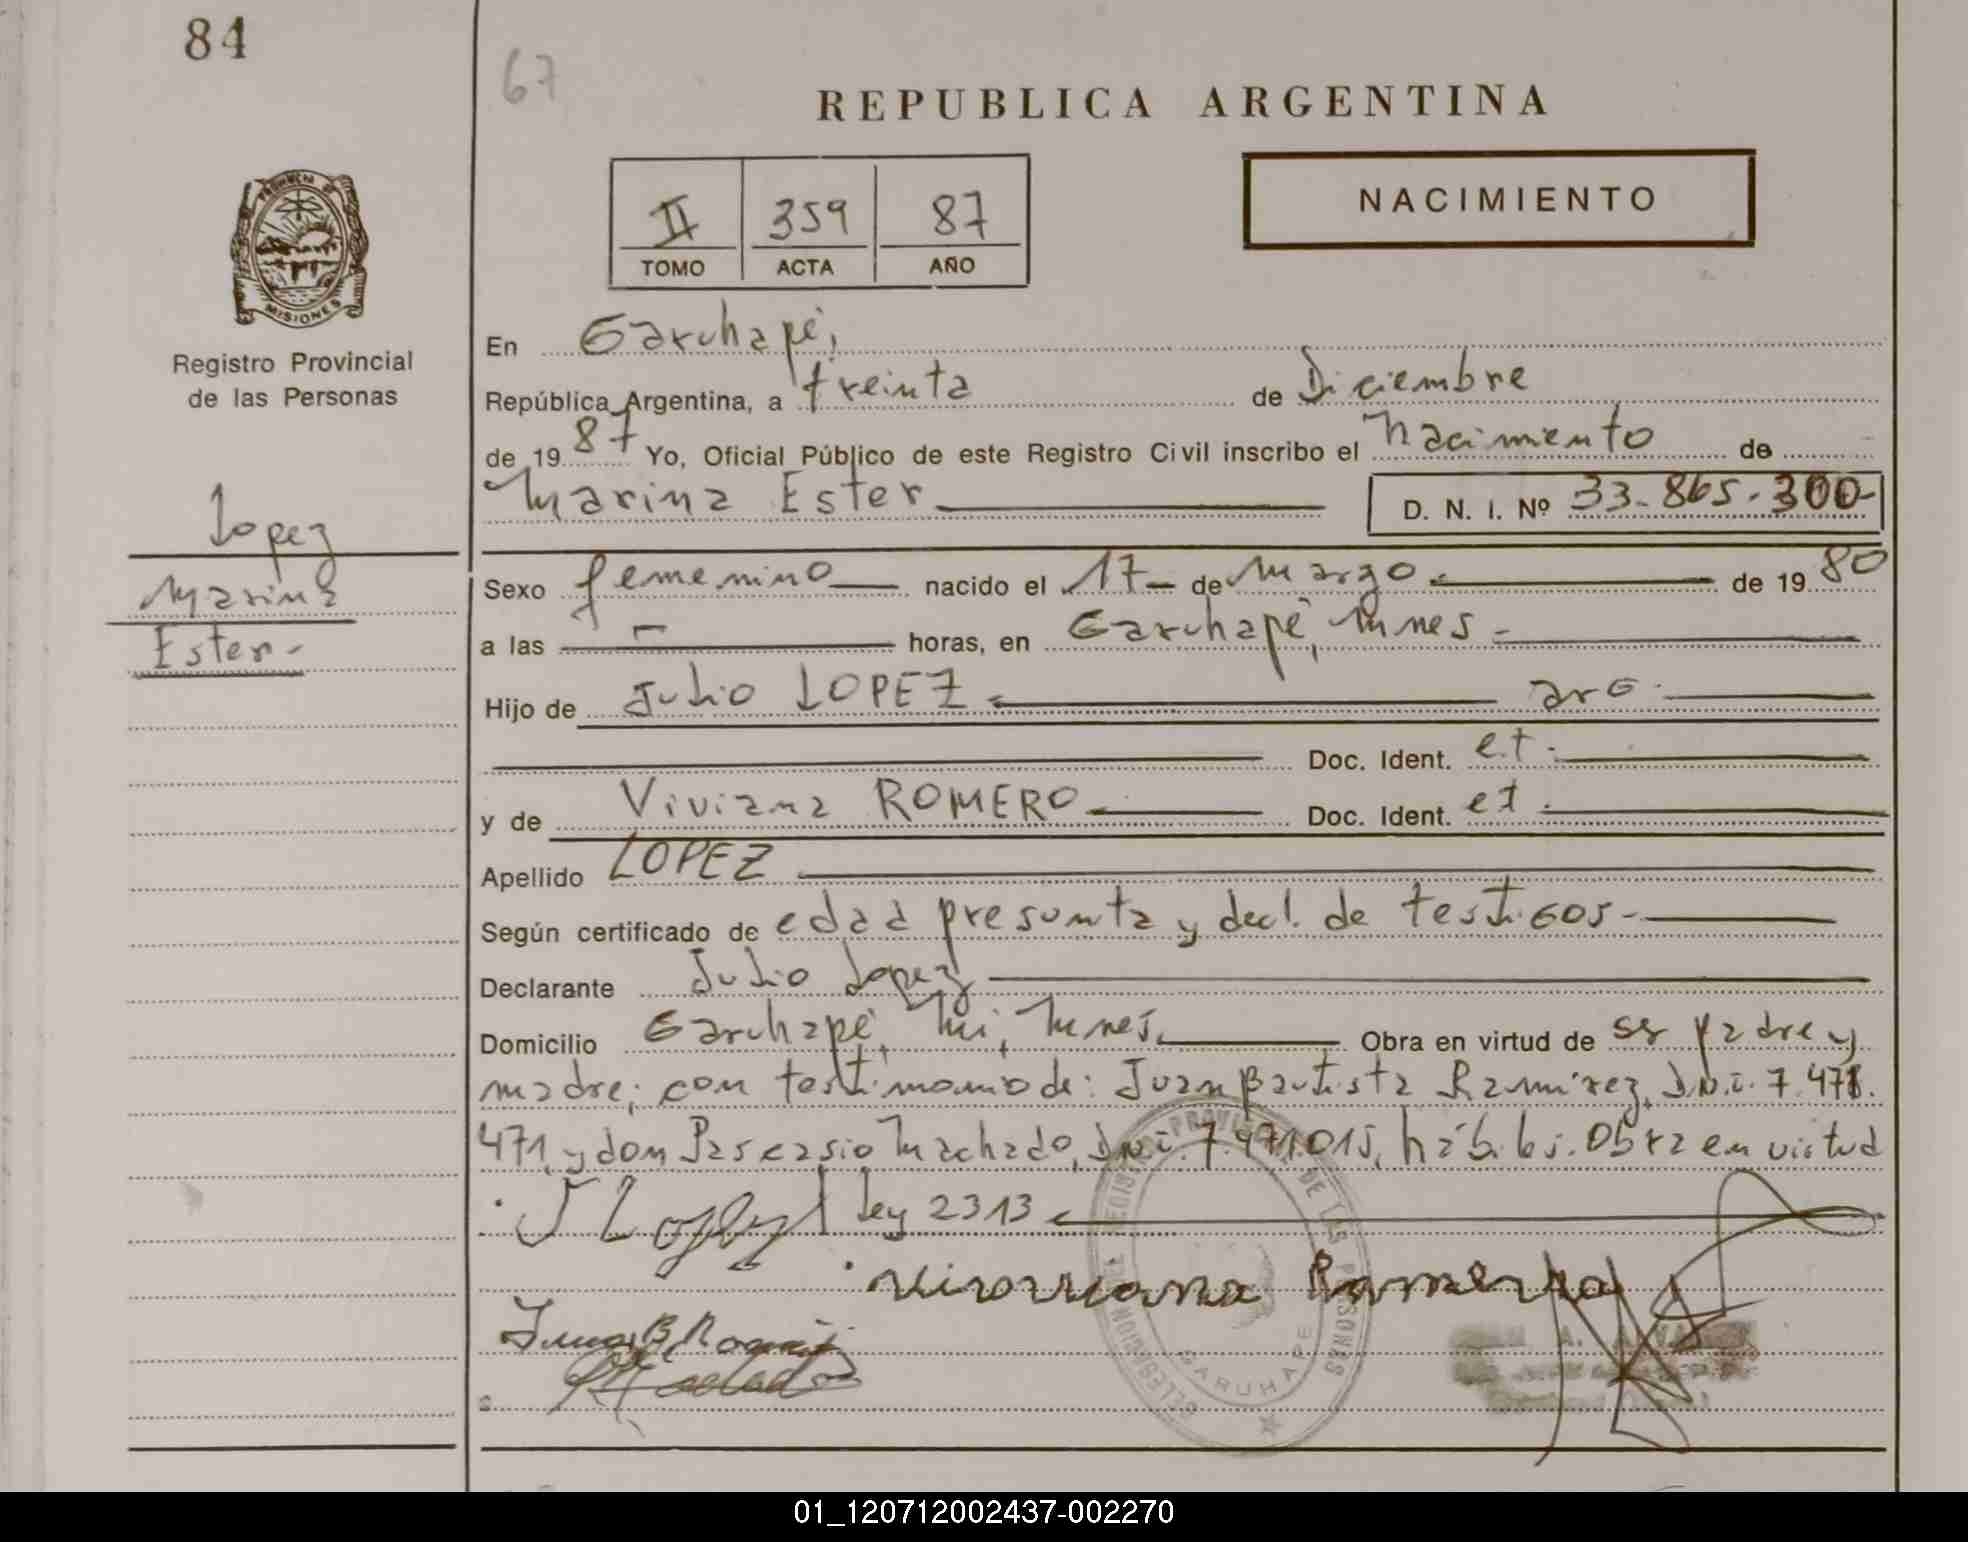 84
67
REPUBLICA ARGENTINA
PROVINCIA DE
MISIONES
Registro Provincial
de las Personas
II 359 87
TOMO ACTA AÑO
NACIMIENTO
En Garuhapé,
República Argentina, a treinta de Diciembre
de 19 87 Yo, Oficial Público de este Registro Civil inscribo el Nacimiento de
Marina Ester D. N. I. Nº 33-865.300-
Lopez
Marina
Ester-
Sexo femenino nacido el 17 de Marzo de 19 80
a las — horas, en Garuhapé, Mnes
Hijo de Julio LOPEZ arg.
Doc. Ident. et.
y de Viviana ROMERO Doc. Ident. et.
Apellido LOPEZ
Según certificado de edad presunta y decl. de testigos-
Declarante Julio Lopez
Domicilio Garuhapé, Mi, Mnes. Obra en virtud de ser padre y
madre; con testimonio de: Juan Bautista Ramirez, D.N.i. 7.478.
471, y don Pascasio Machado, D.N.i. 7.471.015, hábiles. Obra en virtud
J Lopez Ley 2313
Viroviana Romero
Juan B Ramirez
Machado
REGISTRO PROVINCIAL DE LAS PERSONAS
GARUHAPE
01_120712002437-002270